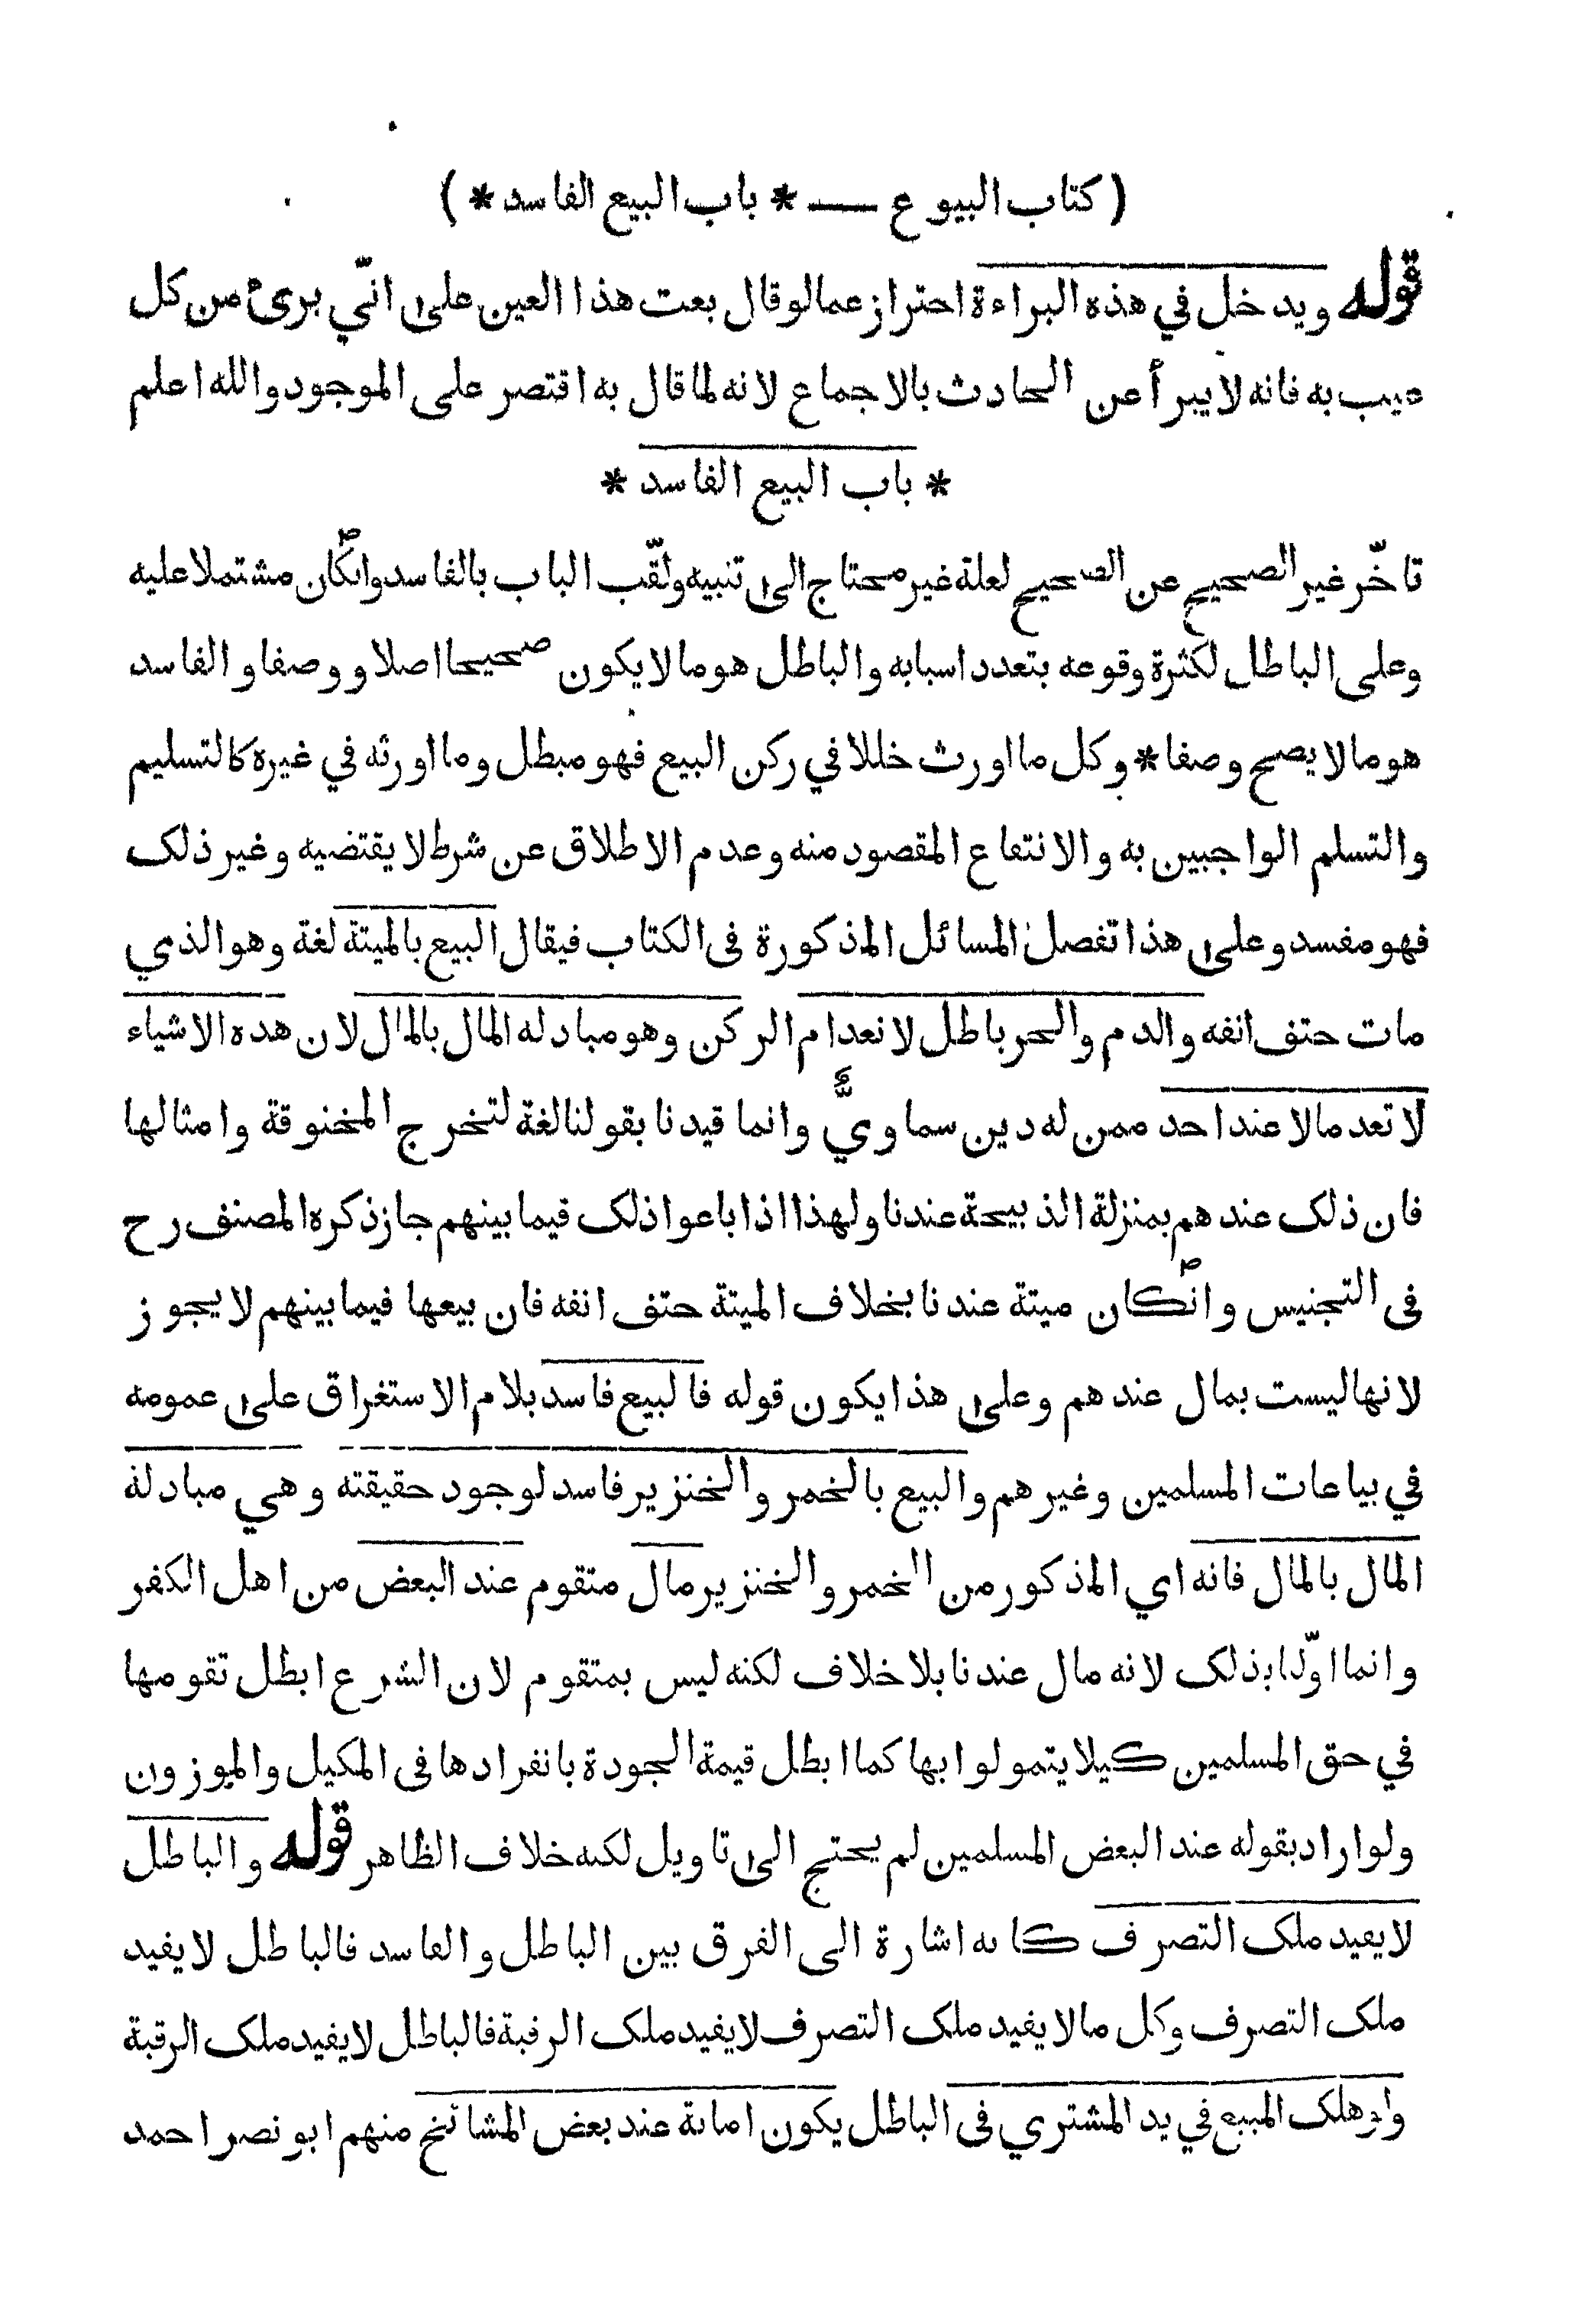 ( كتاب البيوع — * باب البيع الفاسد * )
قوله ويدخل في هذه البراءة احتراز عمالو قال بعت هذا العين على انّي برئ من كل
عيب به فانه لا يبرأ عن الحادث بالاجماع لانه لما قال به اقتصر على الموجود والله اعلم
* باب البيع الفاسد *
تاخّر غير الصحيح عن الصحيح لعلة غير محتاج الى تنبيه ولقّب الباب بالفاسد وانكان مشتملا عليه
وعلى الباطل لكثرة وقوعه بتعدد اسبابه والباطل هو ما لا يكون صحيحا اصلا ووصفا والفاسد
هو ما لا يصح وصفا * وكل ما اورث خللا في ركن البيع فهو مبطل وما اورثه في غيره كالتسليم
والتسلم الواجبين به والانتفاع المقصود منه وعدم الاطلاق عن شرط لا يقتضيه وغير ذلك
فهو مفسد وعلى هذا تفصل المسائل المذكورة فى الكتاب فيقال البيع بالميتة لغة وهو الذي
مات حتف انفه والدم والحر باطل لانعدام الركن وهو مبادلة المال بالمال لان هذه الاشياء
لا تعد مالا عند احد ممن له دين سماويٌّ وانما قيدنا بقولنا لغة لتخرج المخنوقة وامثالها
فان ذلك عندهم بمنزلة الذبيحة عندنا ولهذا اذا باعوا ذلك فيما بينهم جاز ذكره المصنف رح
فى التجنيس وانكان ميتة عندنا بخلاف الميتة حتف انفه فان بيعها فيما بينهم لا يجوز
لانها ليست بمال عندهم وعلى هذا يكون قوله فالبيع فاسد بلام الاستغراق على عمومه
في بياعات المسلمين وغيرهم والبيع بالخمر والخنزير فاسد لوجود حقيقته وهي مبادلة
المال بالمال فانه اي المذكور من الخمر والخنزير مال متقوم عند البعض من اهل الكفر
وانما اوّلنا بذلك لانه مال عندنا بلا خلاف لكنه ليس بمتقوم لان الشرع ابطل تقومها
في حق المسلمين كيلا يتمولوا بها كما ابطل قيمة الجودة بانفرادها فى المكيل والموزون
ولو اراد بقوله عند البعض المسلمين لم يحتج الى تاويل لكنه خلاف الظاهر قوله والباطل
لا يفيد ملك التصرف كانه اشارة الى الفرق بين الباطل والفاسد فالباطل لا يفيد
ملك التصرف وكل ما لا يفيد ملك التصرف لا يفيد ملك الرقبة فالباطل لا يفيد ملك الرقبة
ولو هلك المبيع في يد المشتري فى الباطل يكون امانة عند بعض المشائخ منهم ابو نصر احمد